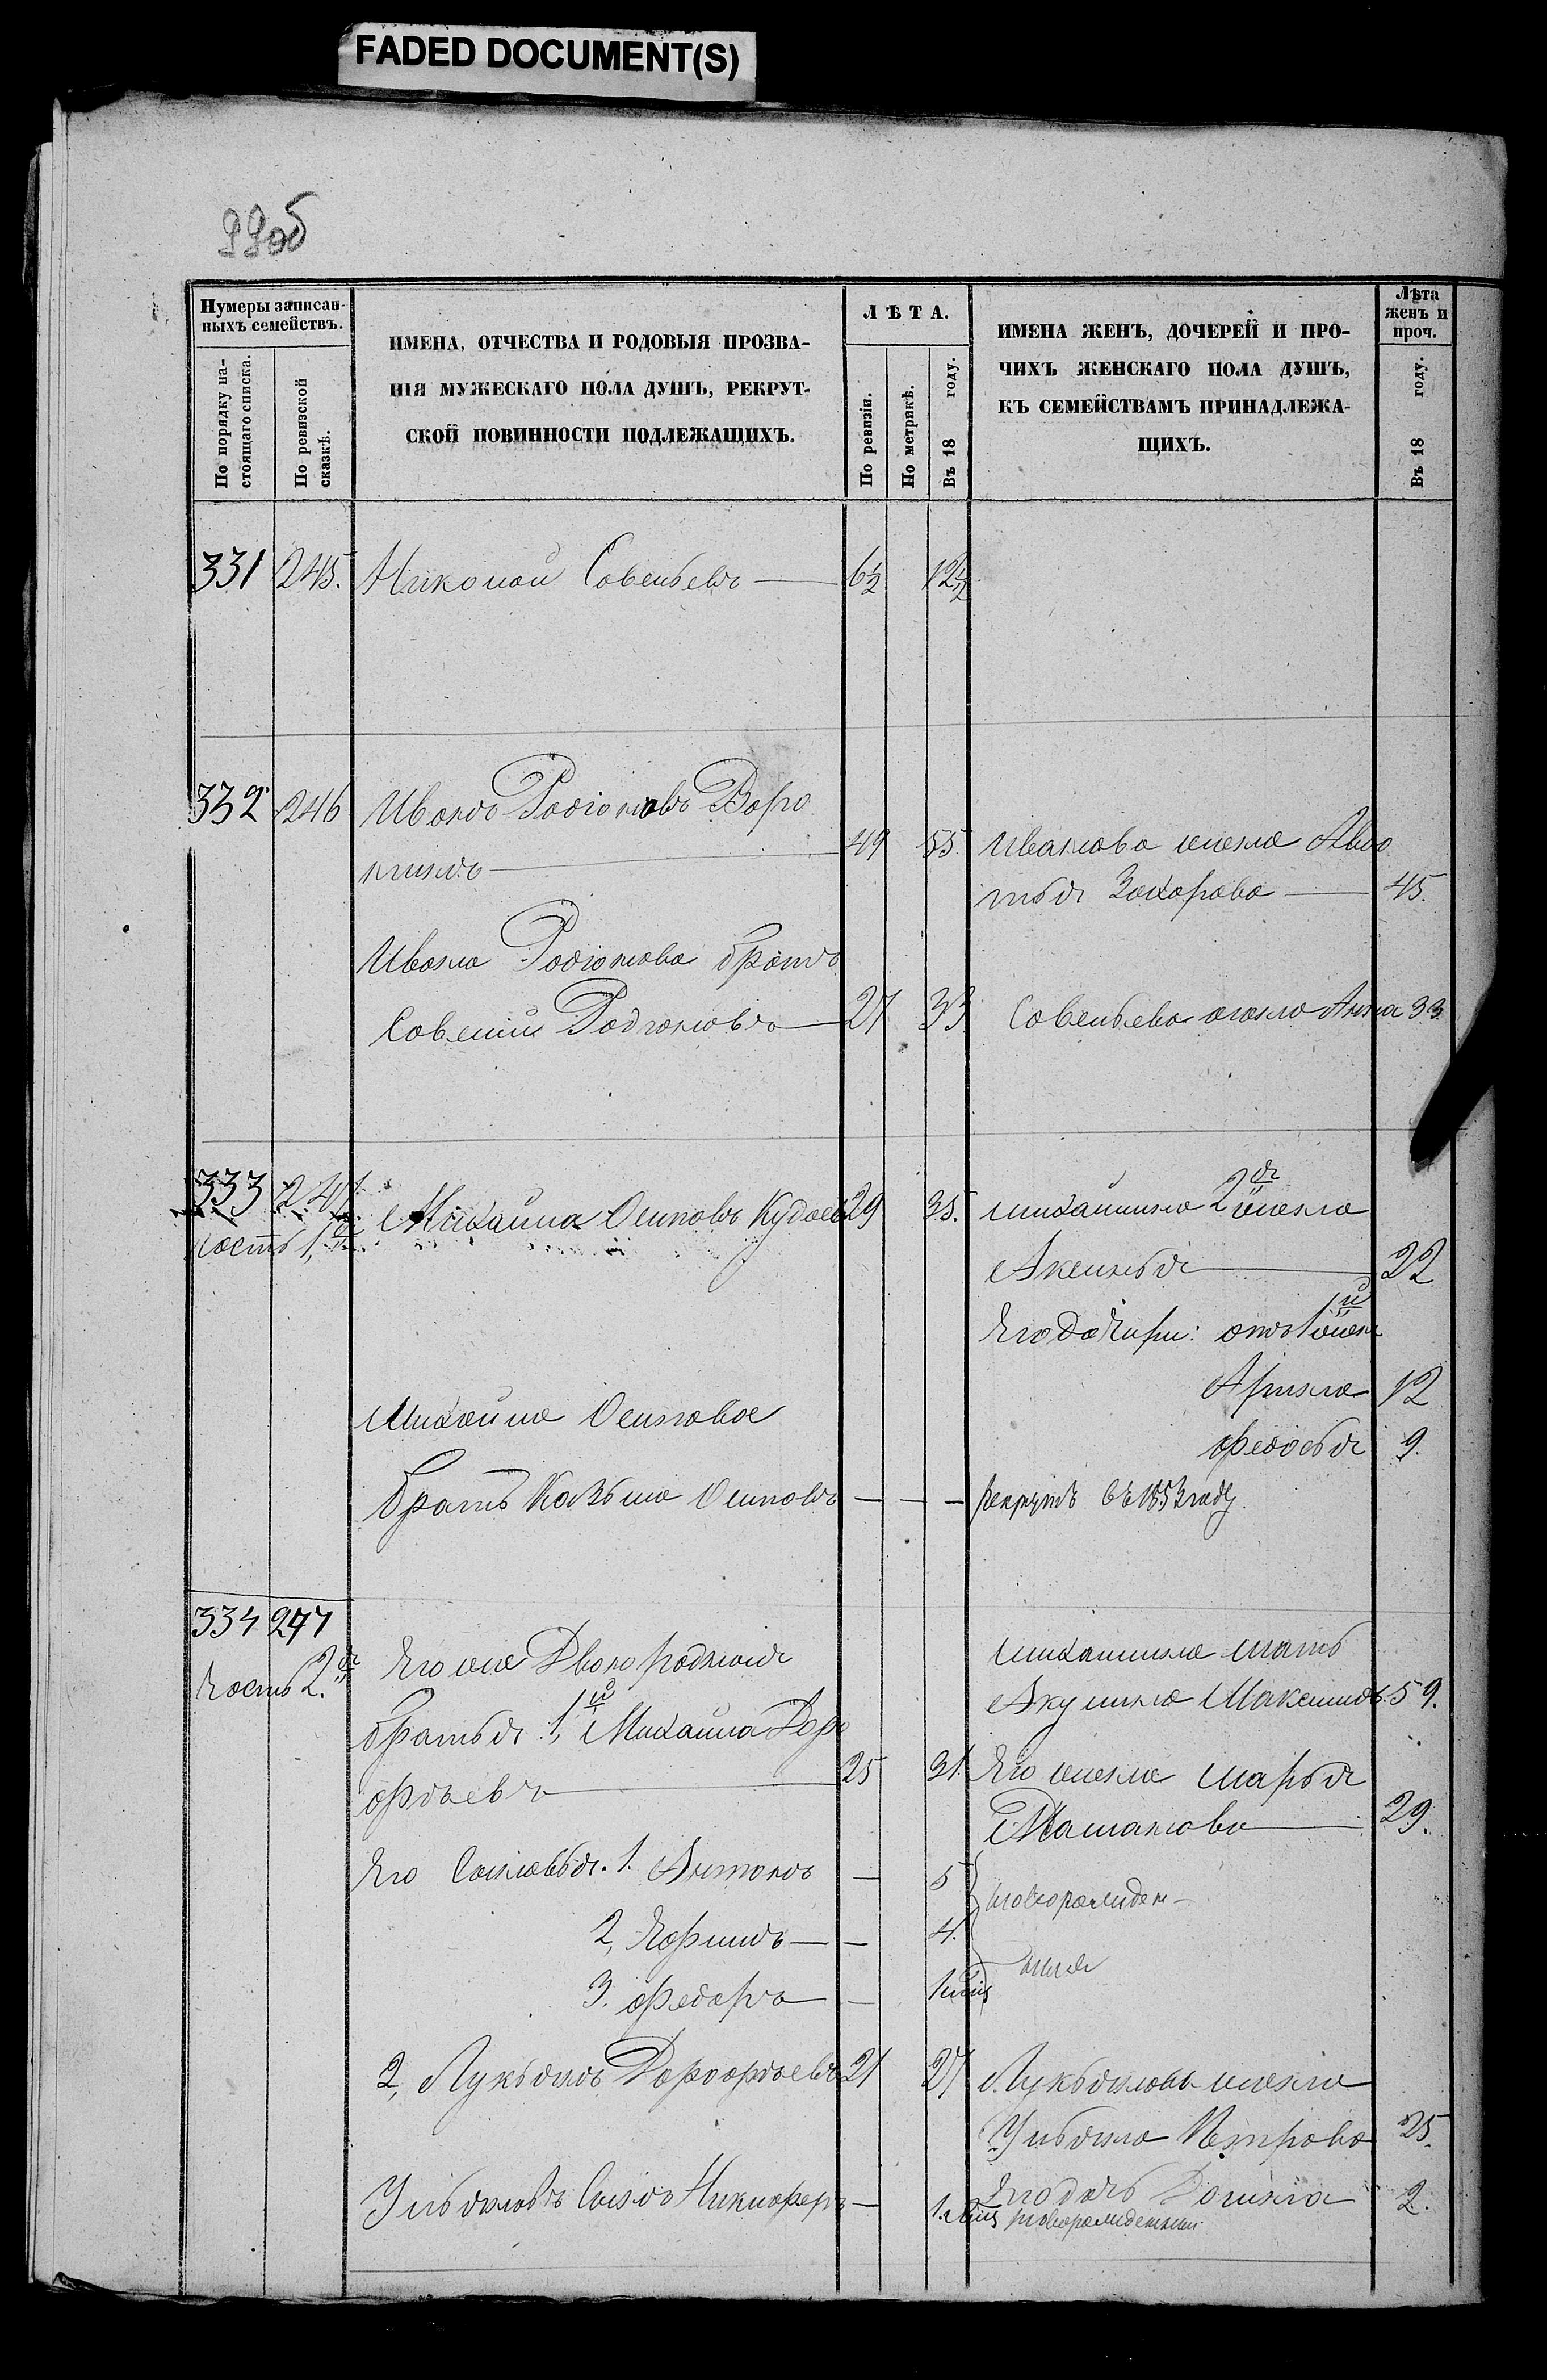 FADED DOCUMENT(S)
99об
Нумеры записан-
ныхъ семействъ.
По порядку на-
стоящаго списка.
По ревизской
сказкѣ.
ИМЕНА, ОТЧЕСТВА И РОДОВЫЯ ПРОЗВА-
НІЯ МУЖЕСКАГО ПОЛА ДУШЪ, РЕКРУТ-
СКОЙ ПОВИННОСТИ ПОДЛЕЖАЩИХЪ.
ЛѢТА.
По ревизіи.
По метрикѣ.
Въ 18 году.
ИМЕНА ЖЕНЪ, ДОЧЕРЕЙ И ПРО-
ЧИХЪ ЖЕНСКАГО ПОЛА ДУШЪ,
КЪ СЕМЕЙСТВАМЪ ПРИНАДЛЕЖА-
ЩИХЪ.
Лѣта
женъ и
проч.
Въ 18 году.
331 245. Николай Савельевъ 6½ 12½
332 246 Иванъ Родіоновъ Воро
нинъ 49 55. Иванова жена Авдо
тья Захарова 45.
Ивана Родіонова братъ
Савелій Родіоновъ 27 33 Савельева жена Анна 33
333 247 Михайла Осиповъ Кудаев 29 35. Михайлина 2я жена
часть 1я
Аксинья 22
Его дочери: отъ 1й жен
Арина 12
Федосья 9.
Михайла Осипова
братъ Козьма Осиповъ — — — рекрутъ въ 1853 году
334 247
часть 2я
Его же двоюродныя Михайлина мать
братья: 1й Михайла Доро Акулина Максимов. 59.
фѣевъ 25 31. Его жена Марья
29.
Его сыновья. 1. Антонъ — 5 новорожден-
2, Ефимъ — 4.
ные
3. Федоръ — 1
2, Лукьянъ Дорофѣевъ 21 27 Лукьянова жена
Ульяна Петрова 25.
Ульяновъ сынъ Никифоръ — 1 Его дочь 2.
новорожденный